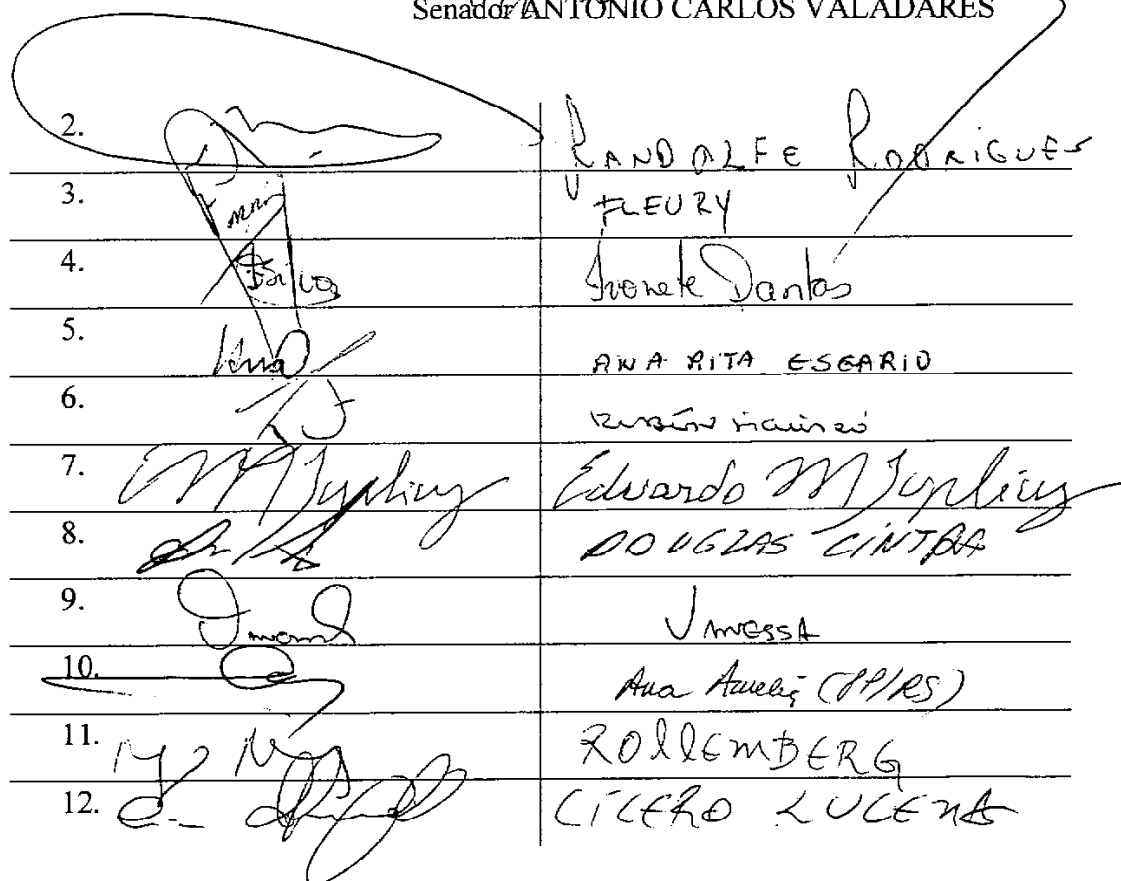 Senador ANTONIO CARLOS VALADARES
2. RANDOLFE RODRIGUES
3. FLEURY
4. Ivonete Dantas
5. Ana ANA RITA ESGARIO
6.
7. EM Suplicy Eduardo M Suplicy
8. DOUGLAS CINTRA
9. VANESSA
10. Ana Amélia (PP/RS)
11. ROLLEMBERG
12. CÍCERO LUCENA